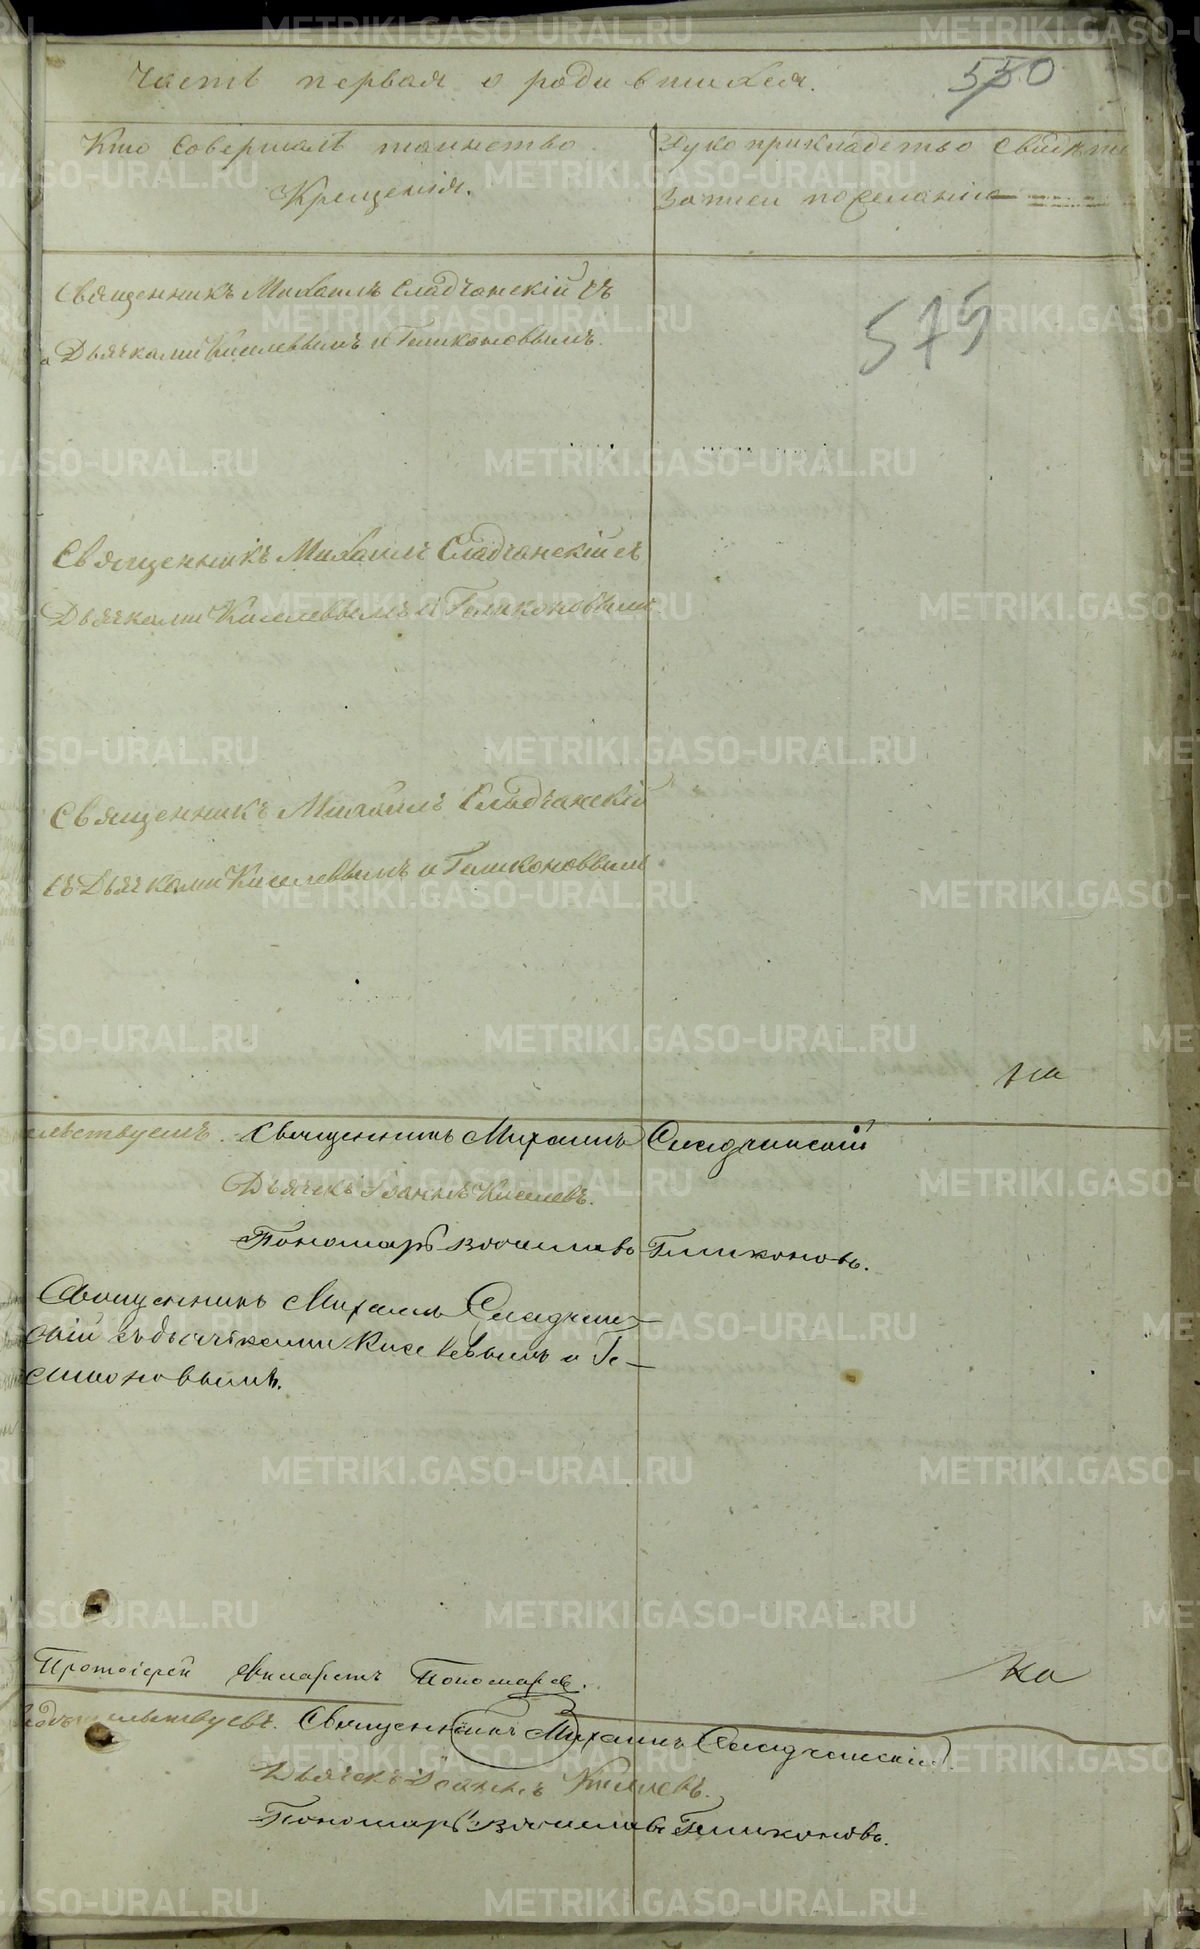 Часть первая о родившихся.
550
Кто совершалъ таинство
Крещенія.
Рукоприкладство свидѣте
записи по желанію
575
Священникъ Михаилъ Сладчанскій съ
Дьячками Киселевымъ и Геликоновымъ.
Священникъ Михаилъ Сладчанскій съ
Дьячками Киселевымъ и Геликоновымъ.
Священникъ Михаилъ Сладчанскій
съ Дьячками Киселевымъ и Геликоновымъ
на
ельствуемъ. Священникъ Михаилъ Сладчанскій
Дьячекъ Іоаннъ Киселевъ.
Пономарь Геликоновъ.
Священникъ Михаилъ Сладчан-
скій съ дьячками Киселевымъ и Ге-
ликоновымъ.
Протоіерей Пономаревъ.
на
Священникъ Михаилъ Сладчанскій
Дьячекъ Іоаннъ Киселевъ.
Пономарь Геликоновъ.
METRIKI.GASO-URAL.RU